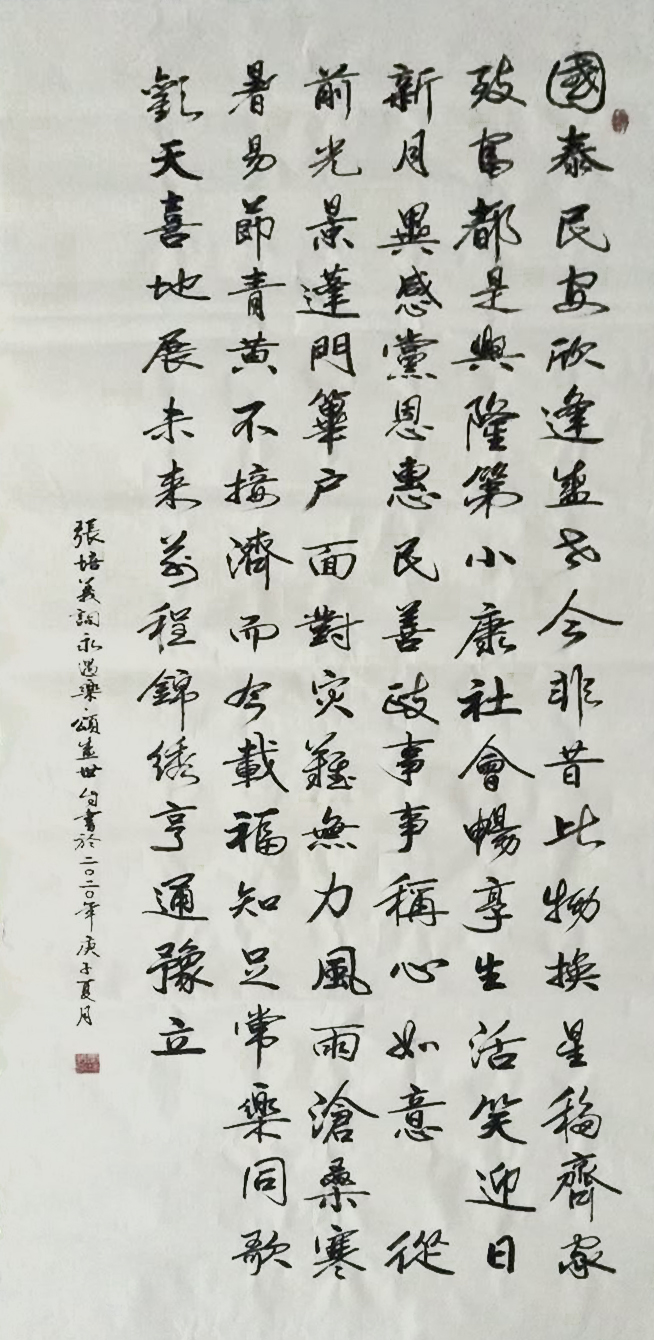 國泰民安欣逢盛世今非昔比物換星移齊家
致富都是興隆第小康社會暢享生活笑迎日
新月異感黨恩惠民善政事事稱心如意 從
前光景蓬門篳户面對灾難無力風雨滄桑寒
暑易節青黄不接濟而今載福知足常樂同歌
歡天喜地展未来前程錦綉亨通豫立
張培義詞永遇樂·頌盛世句書於二〇二〇年庚子夏月